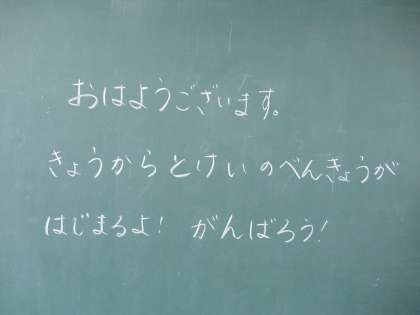 おはようございます。
きょうからとけいのべんきょうが
はじまるよ! がんばろう!